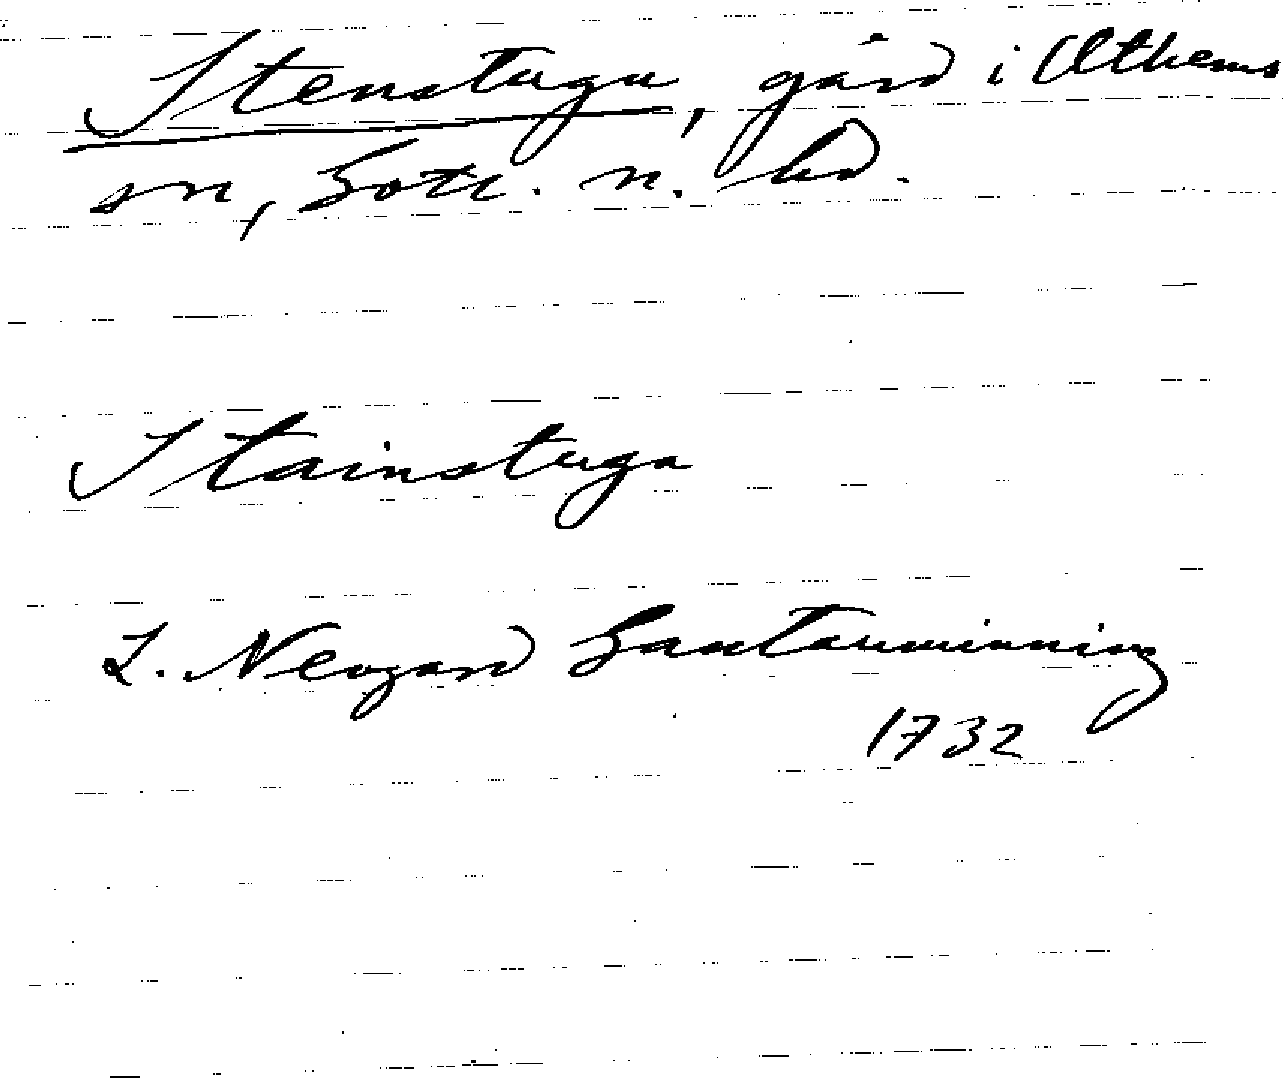 Stenstugu, gård i Othems
sn, Gotl. n. hd.
Stainstuga
L. Neogard Gautauminning
1732